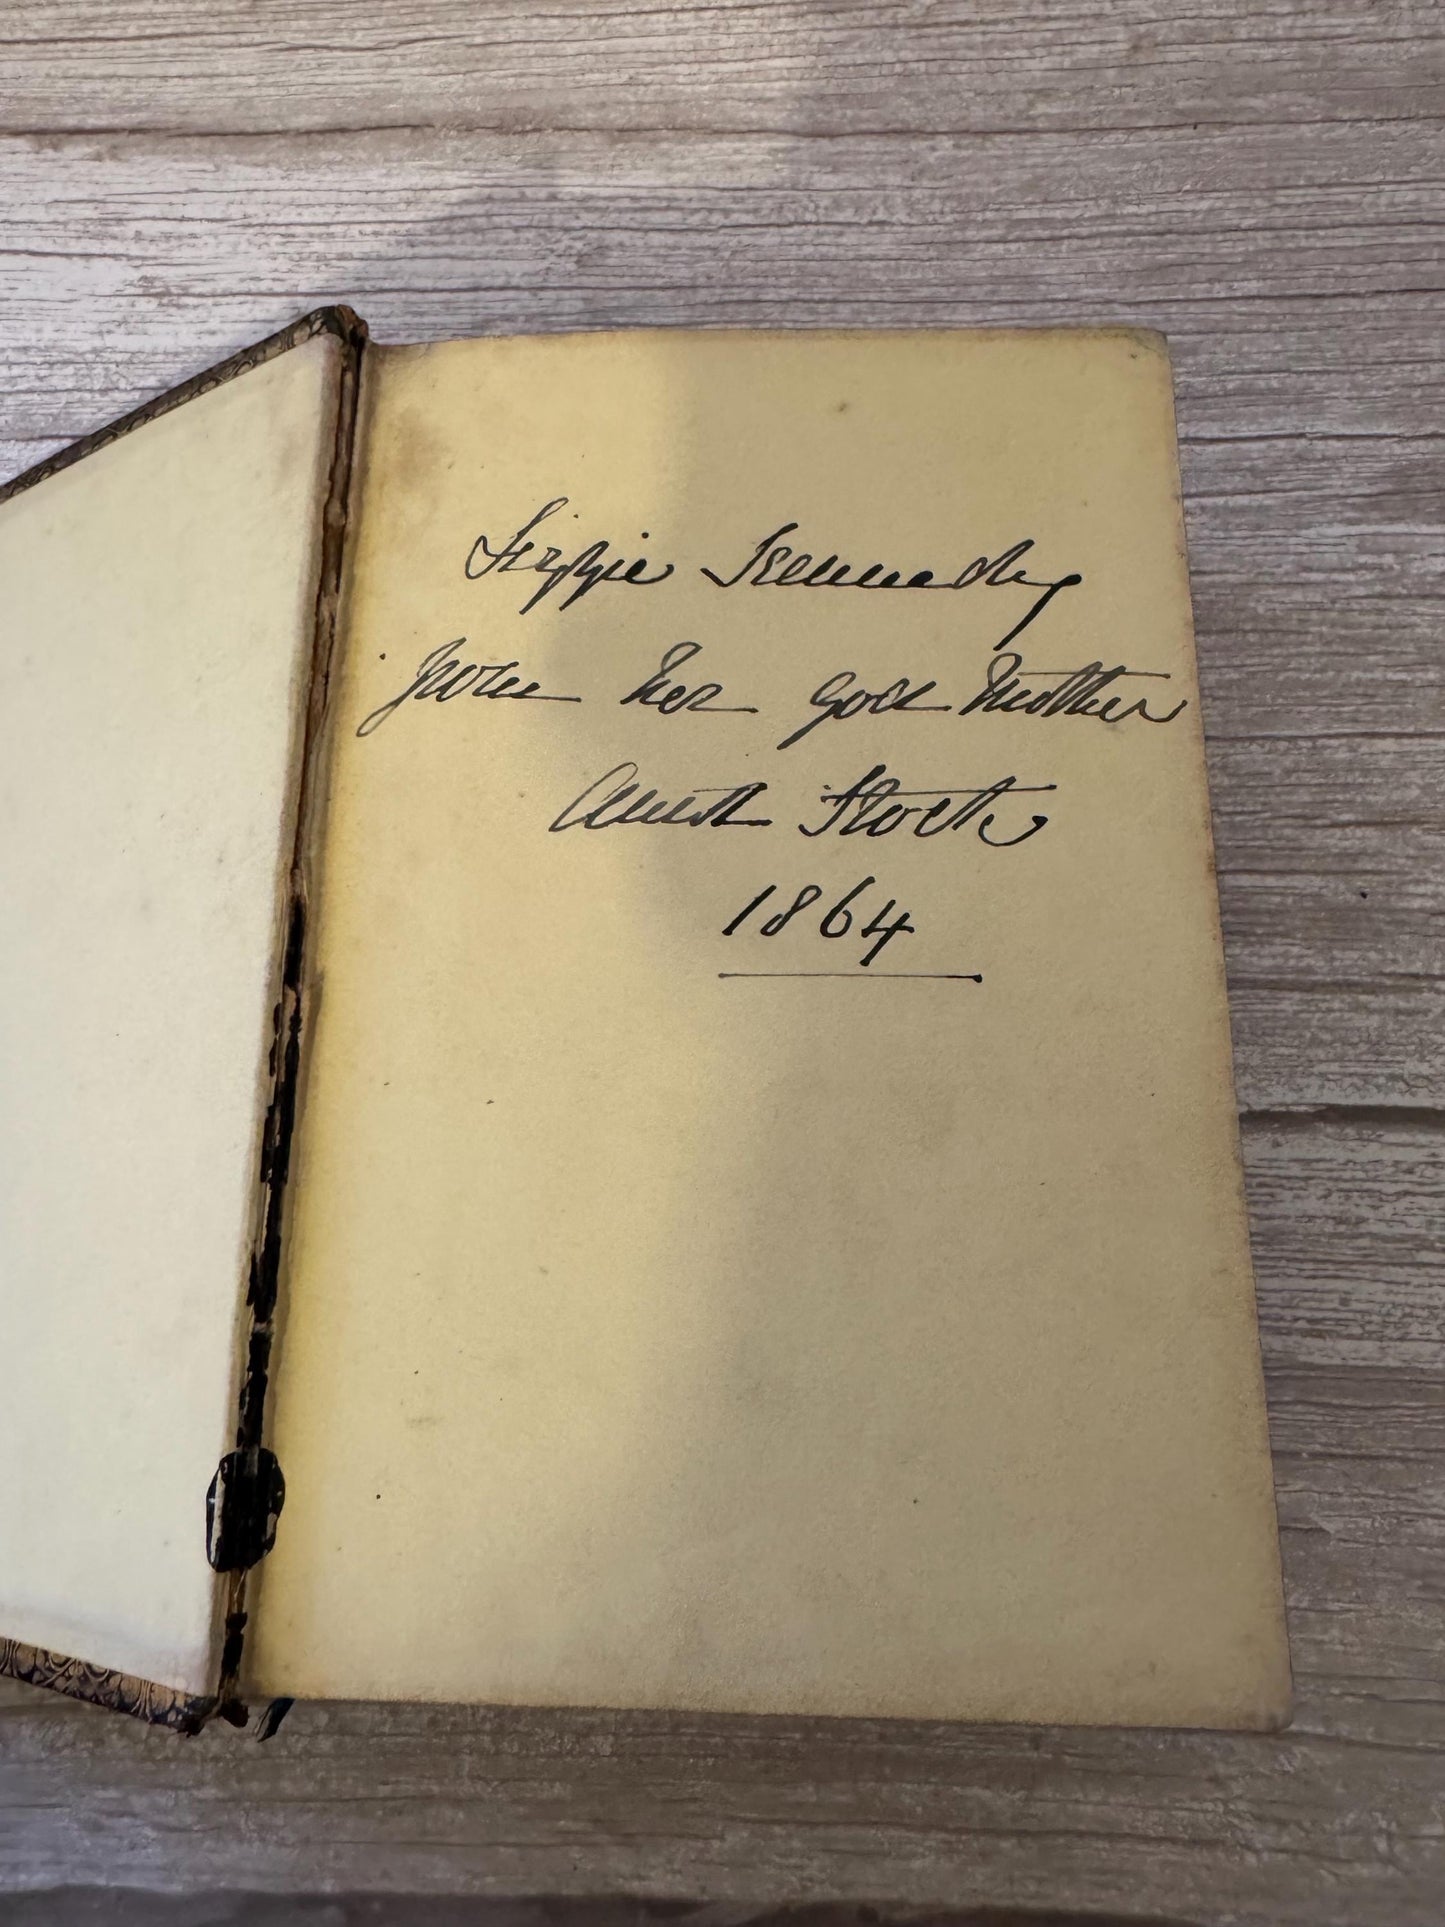 Lizzie Kennedy
from her God Mother
Aunt Stock
1864